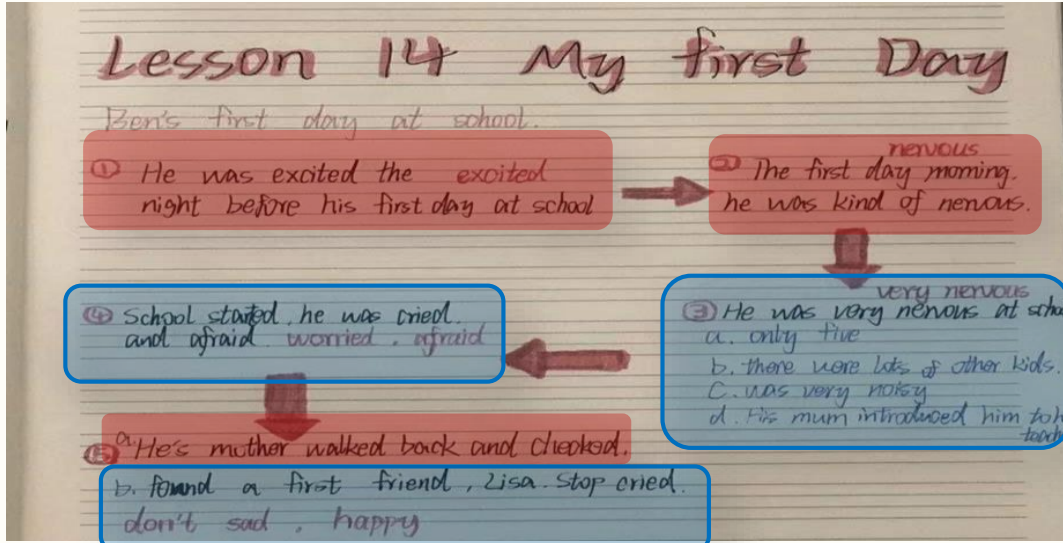 Lesson 14 My first Day
Ben's first day at school.
① He was excited the excited
night before his first day at school
nervous
② The first day morning.
he was kind of nervous.
very nervous
③ He was very nervous at scho
a. only five
b. there were lots of other kids.
c. was very noisy
d. His mum introduced him to h
teach
④ School started, he was cried.
and afraid. worried, afraid
⑤ a. He's mother walked back and checked.
b. found a first friend, Lisa. Stop cried.
don't sad, happy